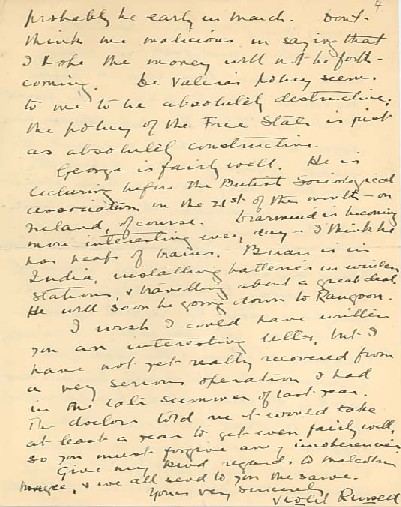 4
probably be early in March. Dont
think me malicious in saying that
I hope the money will not be forth-
coming. De Valera's policy seems
to me to be absolutely destructive;
the policy of the Free State is just
as absolutely constructive.
George is fairly well. He is
lecturing before the British Sociological
Association on the 21st of the month - on
Ireland, of course. Diarmuid is becoming
more interesting every day - I think he
has heaps of brains. Brian is in
India, installing batteries in wireless
stations, & travelling about a great deal
He will soon be going down to Rangoon.
I wish I could have written
you an interesting letter, but I
have not yet really recovered from
a very serious operation I had
in the late summer of last year.
The doctors told me it would take
at least a year to get even fairly well,
so you must forgive any incoherencies
Give my kind regards to Malcolm
Magee, & we all send to you the same.
Yours very sincerely
Violet Russell